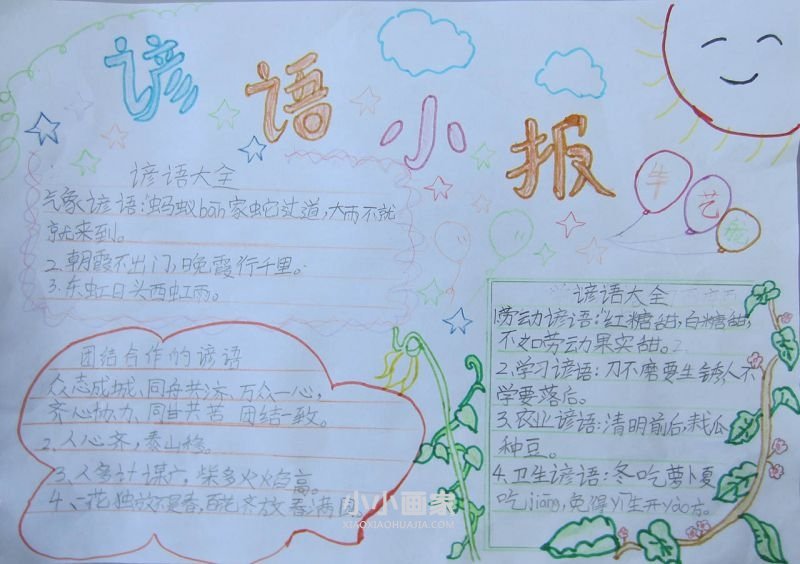 谚语小报
牛艺航
谚语大全
气象谚语:蚂蚁bān家蛇过道,大雨不就
就来到。
2.朝霞不出门,晚霞行千里。
3.东虹日头西虹雨。
团结合作的谚语
众志成城、同舟共济、万众一心,
齐心协力、同甘共苦 团结一致。
2.人心齐,泰山移。
3.人多计谋广,柴多火焰高。
4、一花独放不是春,百花齐放春满园。
谚语大全
1劳动谚语:红糖甜,白糖甜,
不如劳动果实甜。
2.学习谚语:刀不磨要生锈,人不
学要落后。
3.农业谚语:清明前后,栽瓜
种豆。
4.卫生谚语:冬吃萝卜夏
吃jiāng,免得yī生开yào方。
小小画家
XIAOXIAOHUAJIA.COM